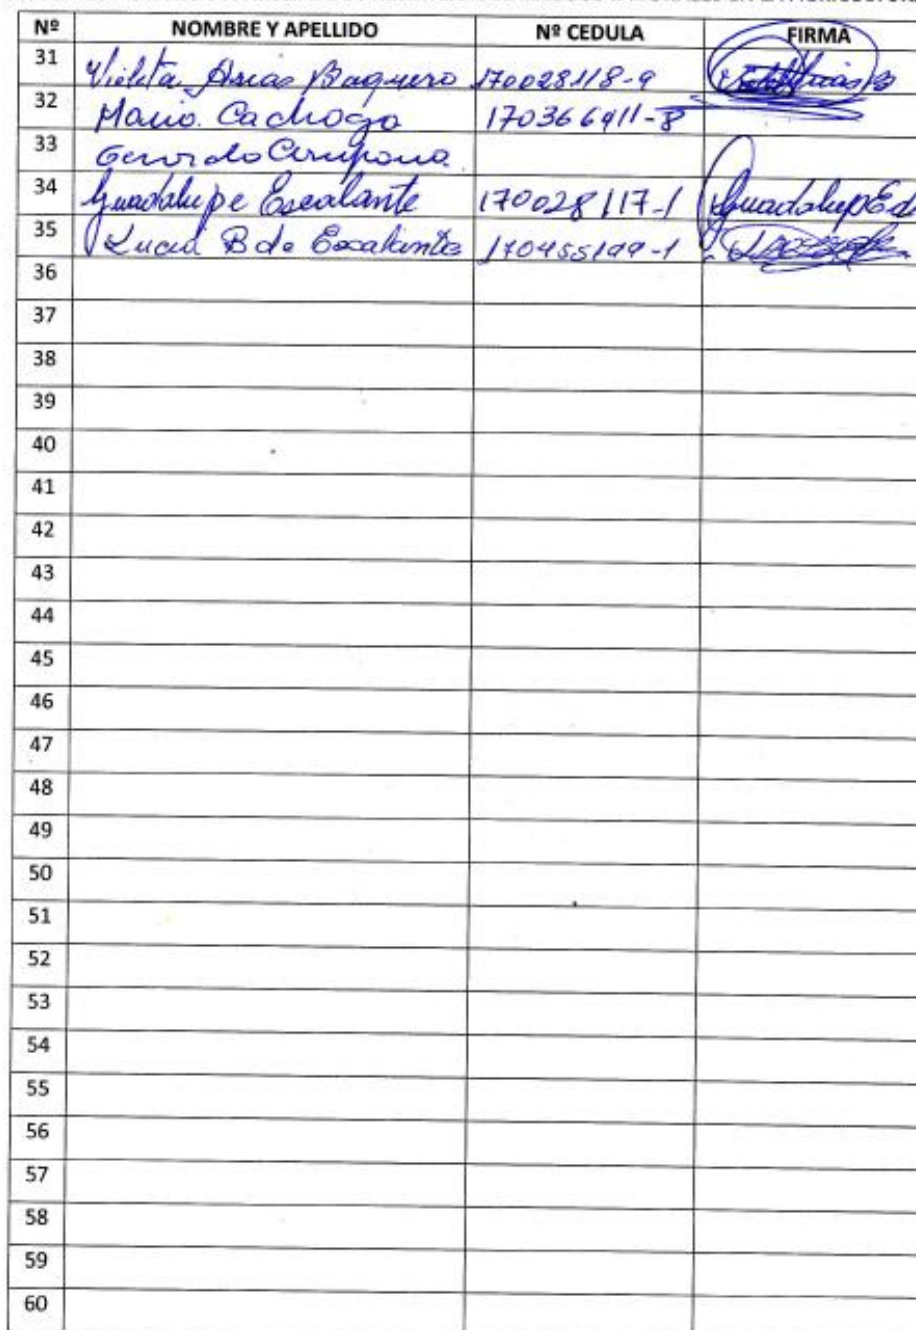 Nº NOMBRE Y APELLIDO Nº CEDULA FIRMA
31 Violeta Arias Baquero 170028118-9
32 Mario Cachago 170366911-8
33 Gerardo
34 Guadalupe Escalante 170028117-1 Guadalup E d
35 Lucia B de Escalante 170455199-1
36
37
38
39
40
41
42
43
44
45
46
47
48
49
50
51
52
53
54
55
56
57
58
59
60